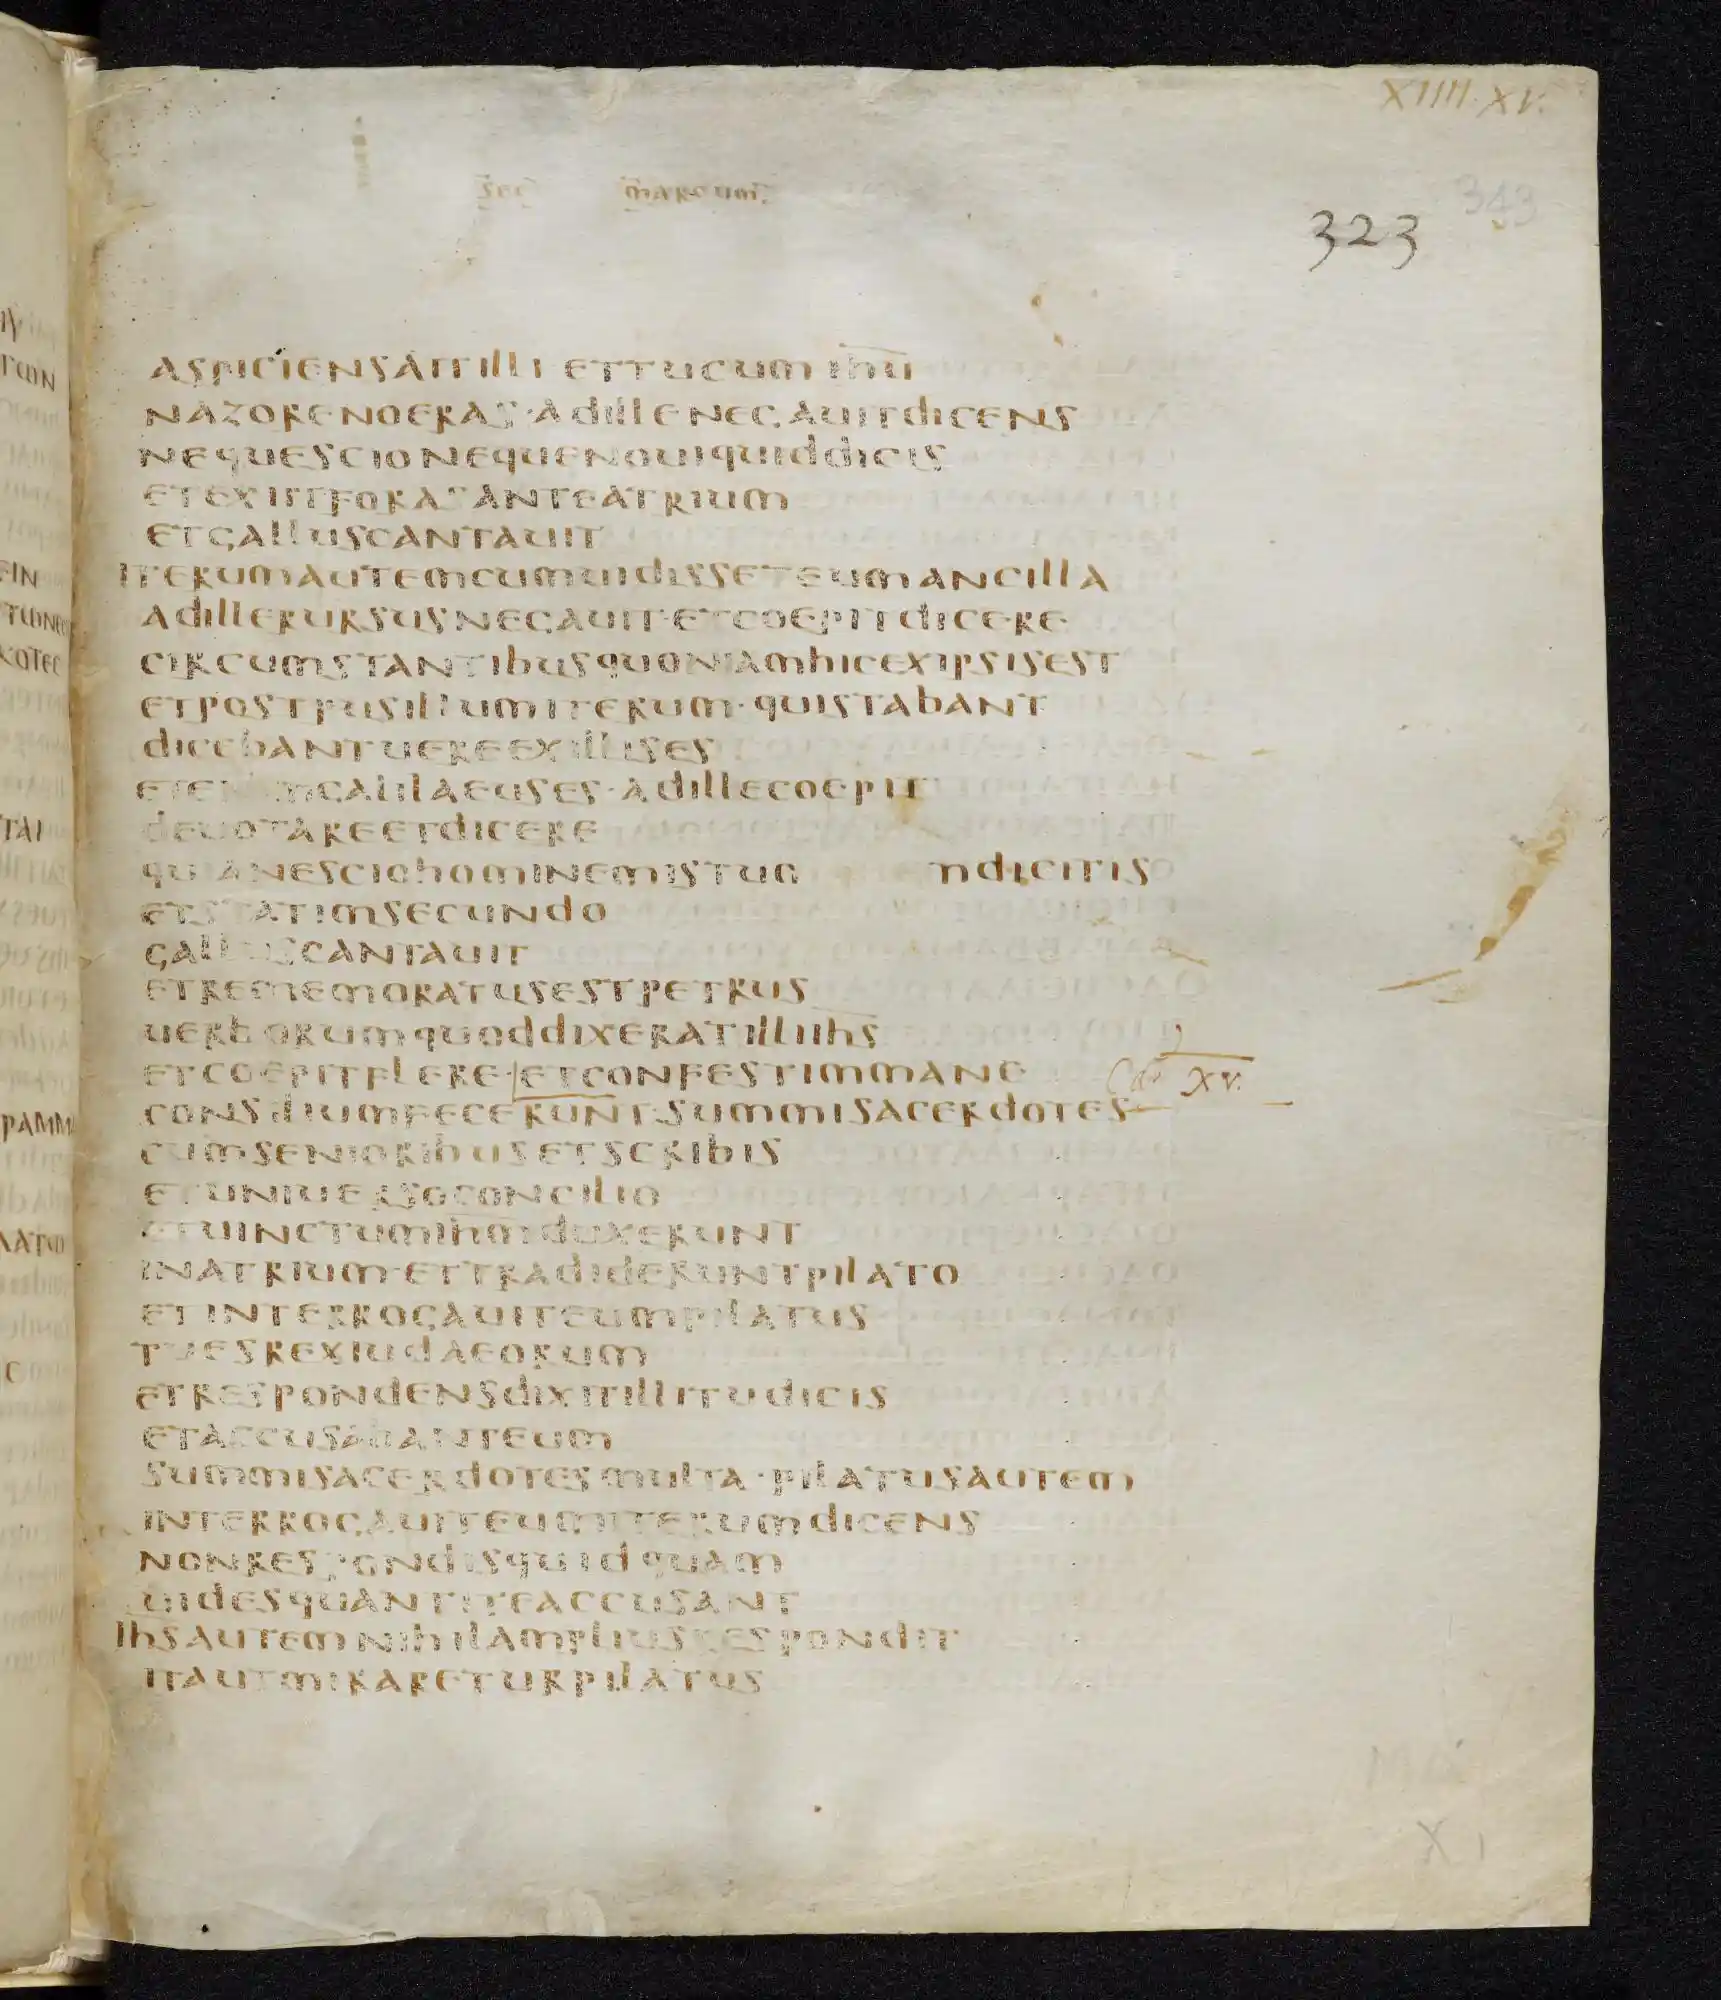 XIIII. XV.
sec marcum
343
323
ASPICIENSAITILLI ETTUCUM IHU
NAZORENOERAS·ADILLENEGAUITDICENS
NEQUESCIONEQUENOUIQUIDDICIS
ETEXIITFORASANTEATRIUM
ETGALLUSCANTAUIT
ITERUMAUTEMCUMUIDISSETEUMANCILLA
ADILLERURSUSNEGAUIT·ETCOEPITDICERE
CIRCUMSTANTIBUSQUONIAMHICEXIPSISEST
ETPOSTPUSILLUMITERUM·QUISTABANT
DICEBANTUEREEXILLISES
ETENIMGALILAEUSES·ADILLECOEPIT
DEUOTAREETDICERE
QUIANESCIOHOMINEMISTUM QUEMDICITIS
ETSTATIMSECUNDO
GALLUSCANTAUIT
ETREMEMORATUSESTPETRUS
UERBORUMQUODDIXERATILLIIHS
ETCOEPITFLERE·ETCONFESTIMMANE
Cap XV.
CONSILIUMFECERUNT·SUMMISACERDOTES
CUMSENIORIBUSETSCRIBIS
ETUNIUERSOCONCILIO
ETUINCTUMIHMDUXERUNT
INATRIUM·ETTRADIDERUNTPILATO
ETINTERROGAUITEUMPILATUS
TUESREXIUDAEORUM
ETRESPONDENSDIXITILLITUDICIS
ETACCUSABANTEUM
SUMMISACERDOTESMULTA·PILATUSAUTEM
INTERROGAUITEUMITERUMDICENS
NONRESPONDISQUIDQUAM
UIDESQUANTITEACCUSANT
IHSAUTEMNIHILAMPLIUSRESPONDIT
ITAUTMIRARETURPILATUS